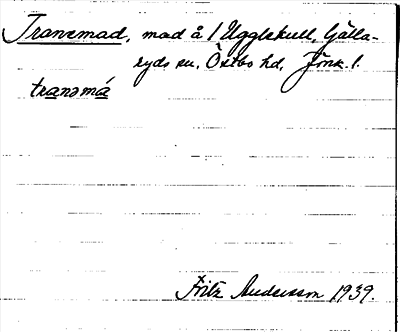 Transmad, mad å 1 Ugglekull, Gälla-
ryds sn, Östbo hd, Jönk. l.
transmá
Fritz Andersson 1939.